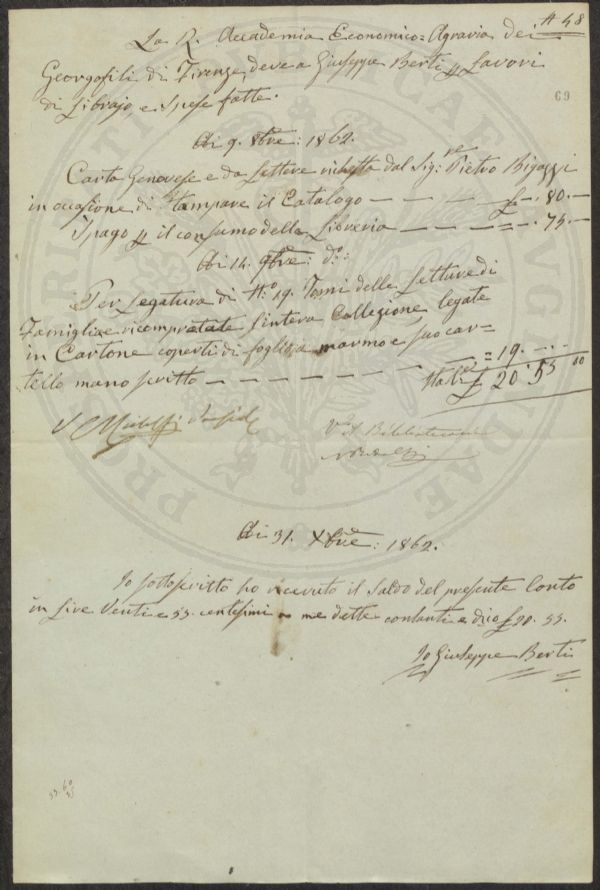 N 48
La R. Accademia Economico=Agraria dei
Georgofili di Firenze, deve a Giuseppe Berti p Lavori
di Librajo, e Spese fatte.
69
Ai 9. 8bre: 1862.
Carta Genovese e da Lettere richiesta dal Sig:re Pietro Bigazzi
in occasione di Stampare il Catalogo — — — £ —. 80. —
Spago p il consumo della Libreria — — — = —. 75. —
Ai 14. 9bre: do:
Per Legatura di No. 19. Tomi delle Letture di
Famiglia e l'intera Collezione legate
in Cartone coperti di foglio a marmo e suo car=
tello mano scritto — — — — — — = 19. — . —
Itale £ 20. 55
Vo. Il Bibliotecario
Ai 31. Xbre: 1862.
Io sottoscritto ho ricevuto il Saldo del presente Conto
in Lire Venti e 55. centesimi a me dette contanti e dico £ 20. 55.
Io Giuseppe Berti